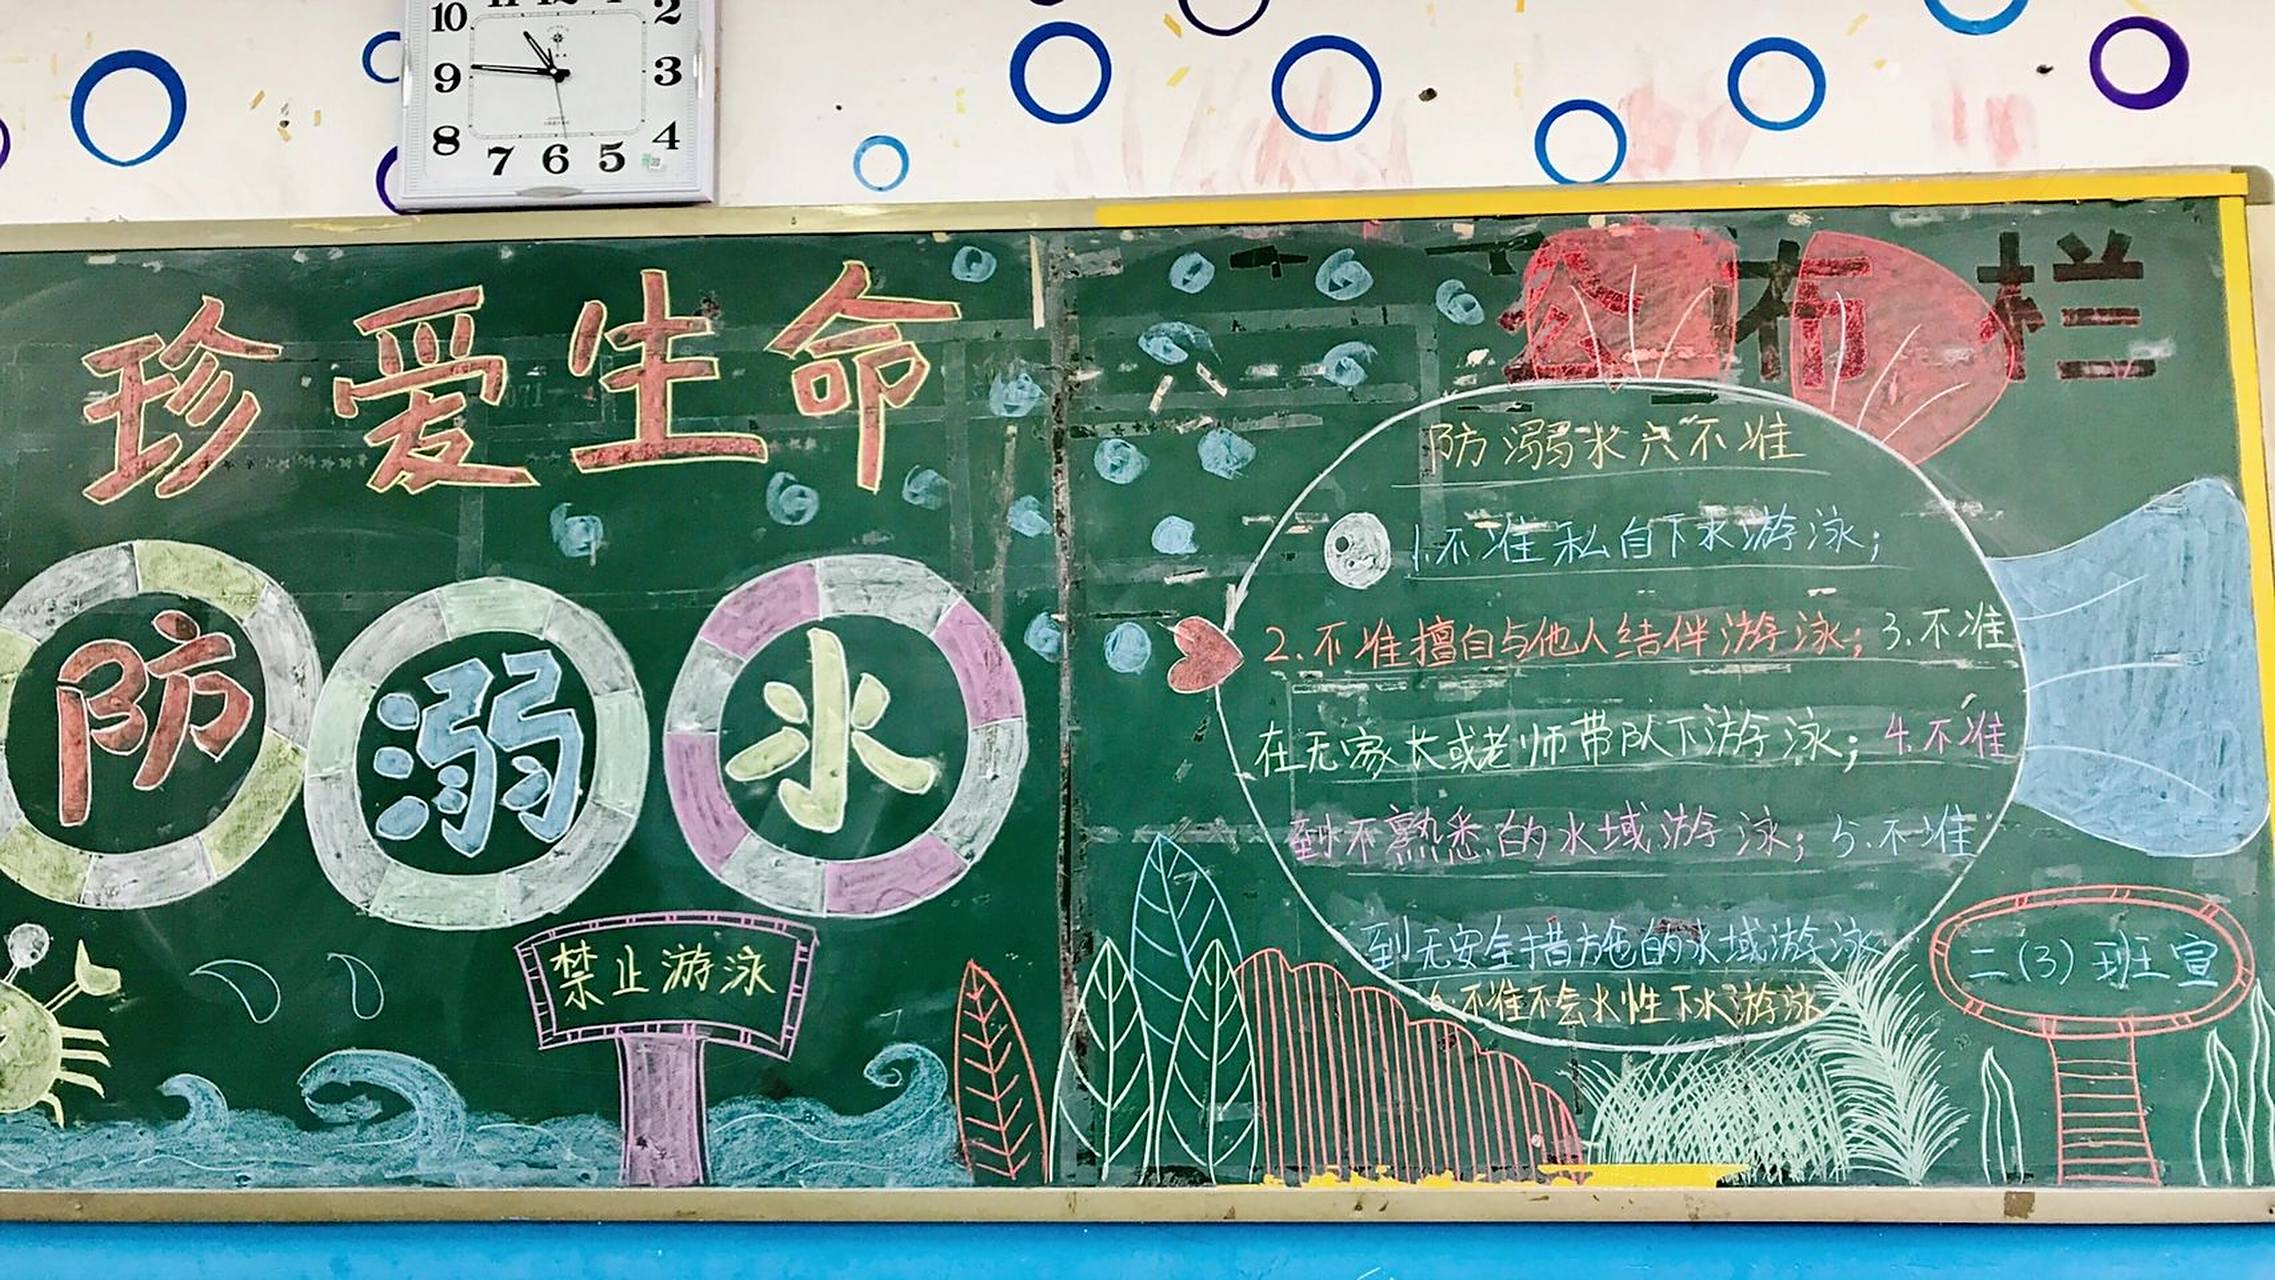 10 11 12 1 2
9 3
8 4
7 6 5
珍爱生命
防溺水
禁止游泳
公布栏
防溺水六不准
1.不准私自下水游泳;
2.不准擅自与他人结伴游泳;3.不准
在无家长或老师带队下游泳;4.不准
到不熟悉的水域游泳;5.不准
到无安全措施的水域游泳
6.不准不会水性下水游泳
二(3)班宣